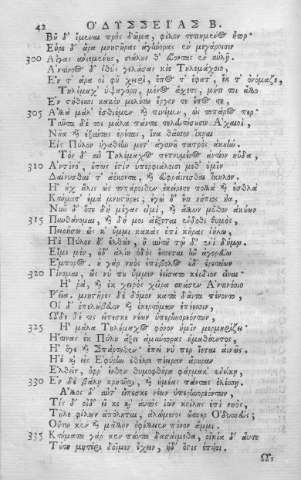 42 ὈΔΥΣΣΕΊΑΣ Β.
Βῆ δ' ἴμεναι πρὸς δῶμα, φίλον τετιημένος ἦτορ·
Εὗρε δ' ἄρα μνηστῆρας ἀγήνορας ἐν μεγάροισιν
300 Αἶγας ἀνιεμένους, σιάλους θ' εὕοντας ἐν αὐλῇ.
Ἀντίνοος δ' ἰθὺς γελάσας κίε Τηλεμάχοιο,
Ἔν τ' ἄρα οἱ φῦ χειρὶ, ἔπος τ' ἔφατ', ἔκ τ' ὀνόμαζε,
Τηλέμαχ' ὑψαγόρη, μένος ἄσχετε, μήτι τοι ἄλλο
Ἐν στήθεσσι κακὸν μελέτω ἔργον τε ἔπος τε,
305 Ἀλλὰ μάλ' ἐσθιέμεν καὶ πινέμεν, ὡς τοπάρος περ.
Ταῦτα δέ τοι μάλα πάντα τελευτήσουσιν Ἀχαιοὶ,
Νῆα καὶ ἐξαίτους ἐρέτας, ἵνα θᾶσσον ἵκηαι
Ἐς Πύλον ἠγαθέην μετ' ἀγαυοῦ πατρὸς ἀκουήν.
Τὸν δ' αὖ Τηλέμαχος πεπνυμένος ἀντίον ηὔδα,
310 Ἀντίνο', οὔπως ἐστὶν ὑπερφιάλοισι μεθ' ὑμῖν
Δαίνυσθαί τ' ἀέκοντα, καὶ εὐφραίνεσθαι ἕκηλον.
Ἦ οὐχ ἅλις ὡς τοπάροιθεν ἐκείρετε πολλὰ καὶ ἐσθλὰ
Κτήματ' ἐμὰ μνηστῆρες, ἐγὼ δ' ἔτι νήπιος ἦα,
Νῦν δ' ὅτε δὴ μέγας εἰμὶ, καὶ ἄλλων μῦθον ἀκούων
315 Πυνθάνομαι, καὶ δή μοι ἀέξεται ἔνδοθι θυμὸς,
Πειρήσω ὥς κ' ὔμμι κακὰς ἐπὶ κῆρας ἰήλω,
Ἠὲ Πύλον δ' ἐλθὼν, ἢ αὐτοῦ τῷδ' ἐνὶ δήμῳ.
Εἶμι μὲν, οὐδ' ἁλίη ὁδὸς ἔσσεται ἣν ἀγορεύω
Ἔμπορος· οὐ γὰρ νηὸς ἐπήβολος οὐδ' ἐρετάων
320 Γίνομαι, ὥς νύ που ὔμμιν ἐείσατο κέρδιον εἶναι·
Ἦ ῥὰ, καὶ ἐκ χειρὸς χεῖρα σπάσατ' Ἀντινόοιο
Ῥεῖα. μνηστῆρες δὲ δόμον κάτα δαῖτα πένοντο,
Οἱ δ' ἐπελώβευον καὶ ἐκερτόμεον ἐπέεσσιν,
Ὧδε δέ τις εἴπεσκε νέων ὑπερηνορεόντων,
325 Ἦ μάλα Τηλέμαχος φόνον ὑμῖν μερμηρίζει·
Ἤ τινας ἐκ Πύλου ἄξει ἀμύντορας ἠμαθόεντος,
Ἢ ὅγε καὶ Σπάρτηθεν· ἐπεὶ νύ περ ἵεται αἰνῶς,
Ἠὲ καὶ εἰς Ἐφύρην ἐθέλει πίειραν ἄρουραν
Ἐλθεῖν, ὄφρ' ἔνθεν θυμοφθόρα φάρμακ' ἐνείκῃ,
330 Ἐν δὲ βάλῃ κρητῆρι, καὶ ἡμέας πάντας ὀλέσσῃ.
Ἄλλος δ' αὖτ' εἴπεσκε νέων ὑπερηνορεόντων,
Τίς δ' οἶδ' εἴ κε κ' αὐτὸς ἰὼν κοίλης ἐπὶ νηὸς,
Τῆλε φίλων ἀπόληται, ἀλώμενος ὥσπερ Ὀδυσσεύς;
Οὕτω κεν καὶ μᾶλλον ὀφέλλειεν πόνον ἄμμι.
335 Κτήματα γάρ κεν πάντα δασαίμεθα, οἰκία δ' αὖτε
Τούτου μητέρι δοῖμεν ἔχειν, ἠδ' ὅστις ὀπυίοι.
Ὣς